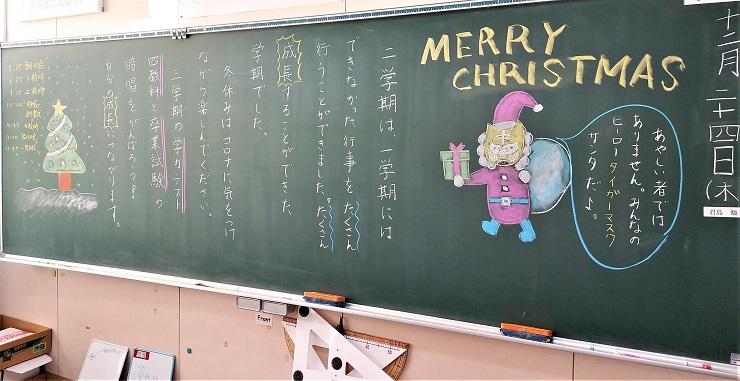 十二月二十四日(木)
MERRY
CHRISTMAS
あやしい者では
ありません。みんなの
ヒーロータイガーマスク
サンタだよっ。
二学期は、一学期には
できなかった行事をたくさん
行うことができました。たくさん
成長することができた
学期でした。
冬休みはコロナに気をつけ
ながら楽しんでください。
三学期の学力テスト
四教科と卒業試験の
暗唱をがんばろう!
自分の成長につながります。
8:15 朝の会
8:25
9:15
10:00
10:45
11:35
11:45
Front